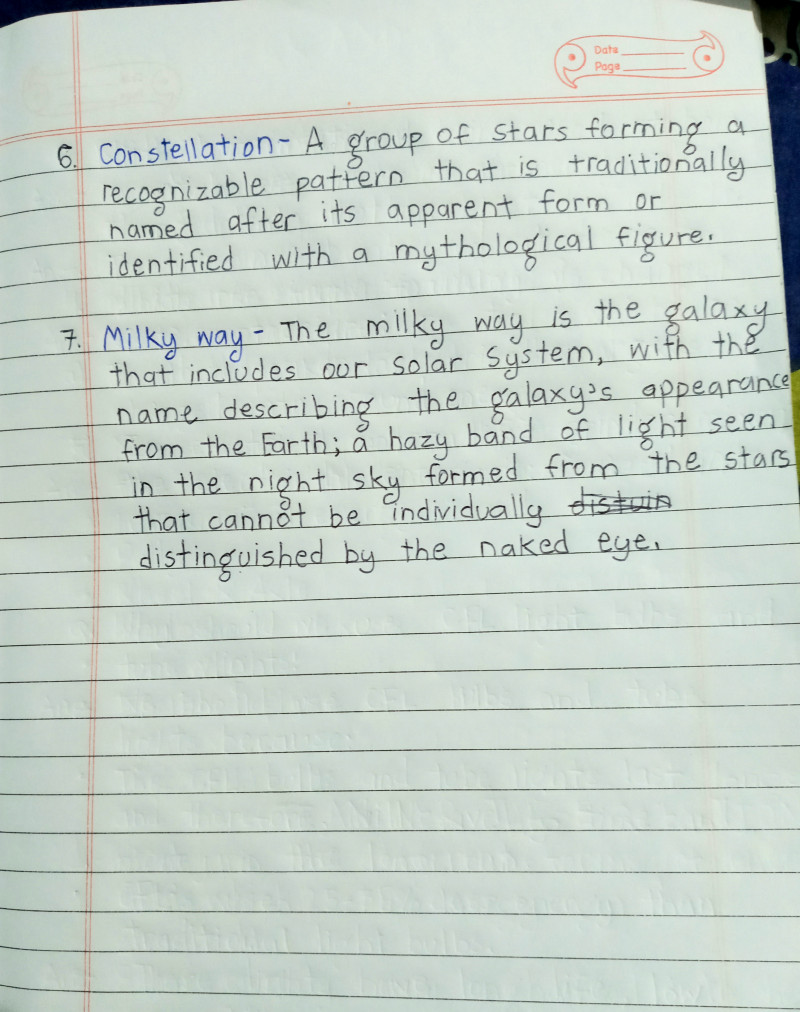 Date
Page
6. Constellation - A group of stars forming a
recognizable pattern that is traditionally
named after its apparent form or
identified with a mythological figure.
7. Milky way - The milky way is the galaxy
that includes our solar system, with the
name describing the galaxy's appearance
from the Earth; a hazy band of light seen
in the night sky formed from the stars
that cannot be individually distuin
distinguished by the naked eye.